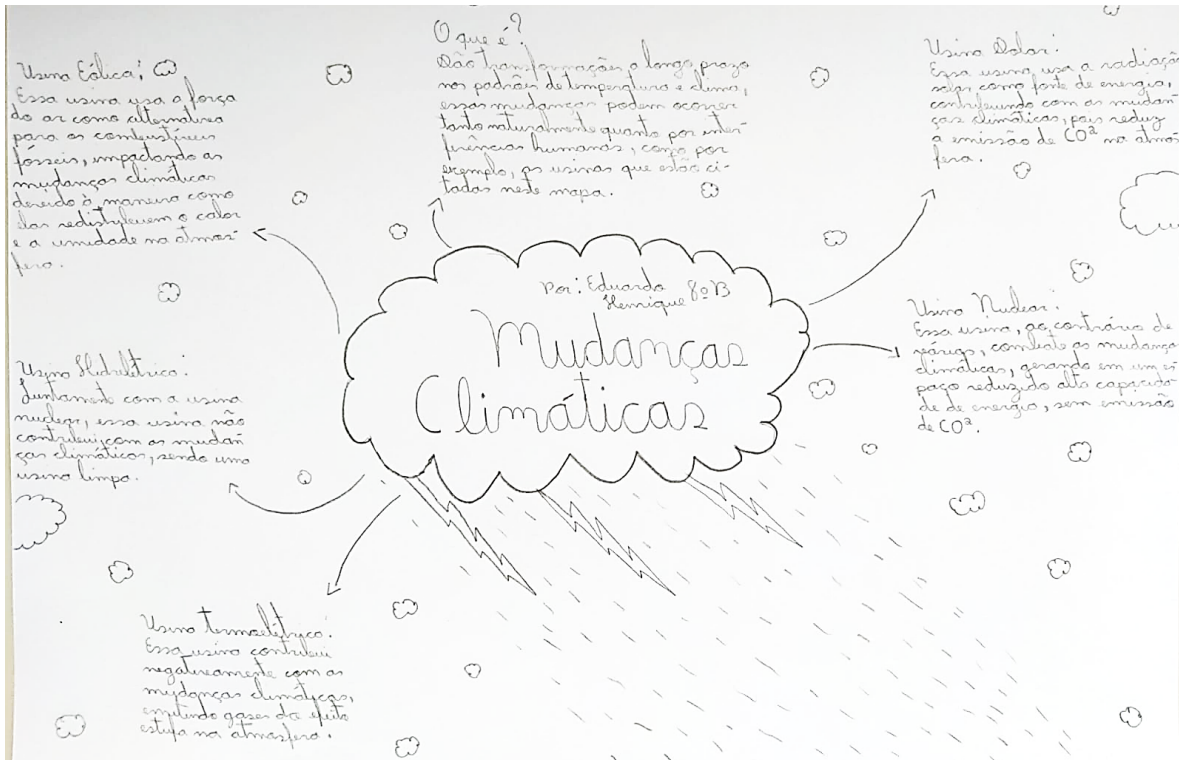 Por: Eduardo
Henrique 8º B
Mudanças
Climáticas
O que é?
São transformações a longo prazo
nos padrões de temperatura e clima,
essas mudanças podem ocorrer
tanto naturalmente quanto por inter
ferências humanas, como por
exemplo, as usinas que estão ci-
tadas neste mapa.
Usina Eólica:
Essa usina usa a força
do ar como alternativa
para os combustíveis
fósseis, impactando as
mudanças climáticas
devido à maneira como
elas redistribuem o calor
e a umidade na atmos-
fera.
Usina Hidrelétrica:
Juntamente com a usina
nuclear, essa usina não
contribui com as mudan
ças climáticas, sendo uma
usina limpa.
Usina termoelétrica:
Essa usina contribui
negativamente com as
mudanças climáticas,
emitindo gases do efeito
estufa na atmosfera.
Usina Solar:
Essa usina, usa a radiação
solar, como fonte de energia,
contribuindo com as mudan
ças climáticas, pois reduz
a emissão de CO² na atmos
fera.
Usina Nuclear:
Essa usina, ao contrário de
várias, combate as mudanças
climáticas, gerando em um es
paço reduzido alta capacida
de de energia, sem emissão
de CO².